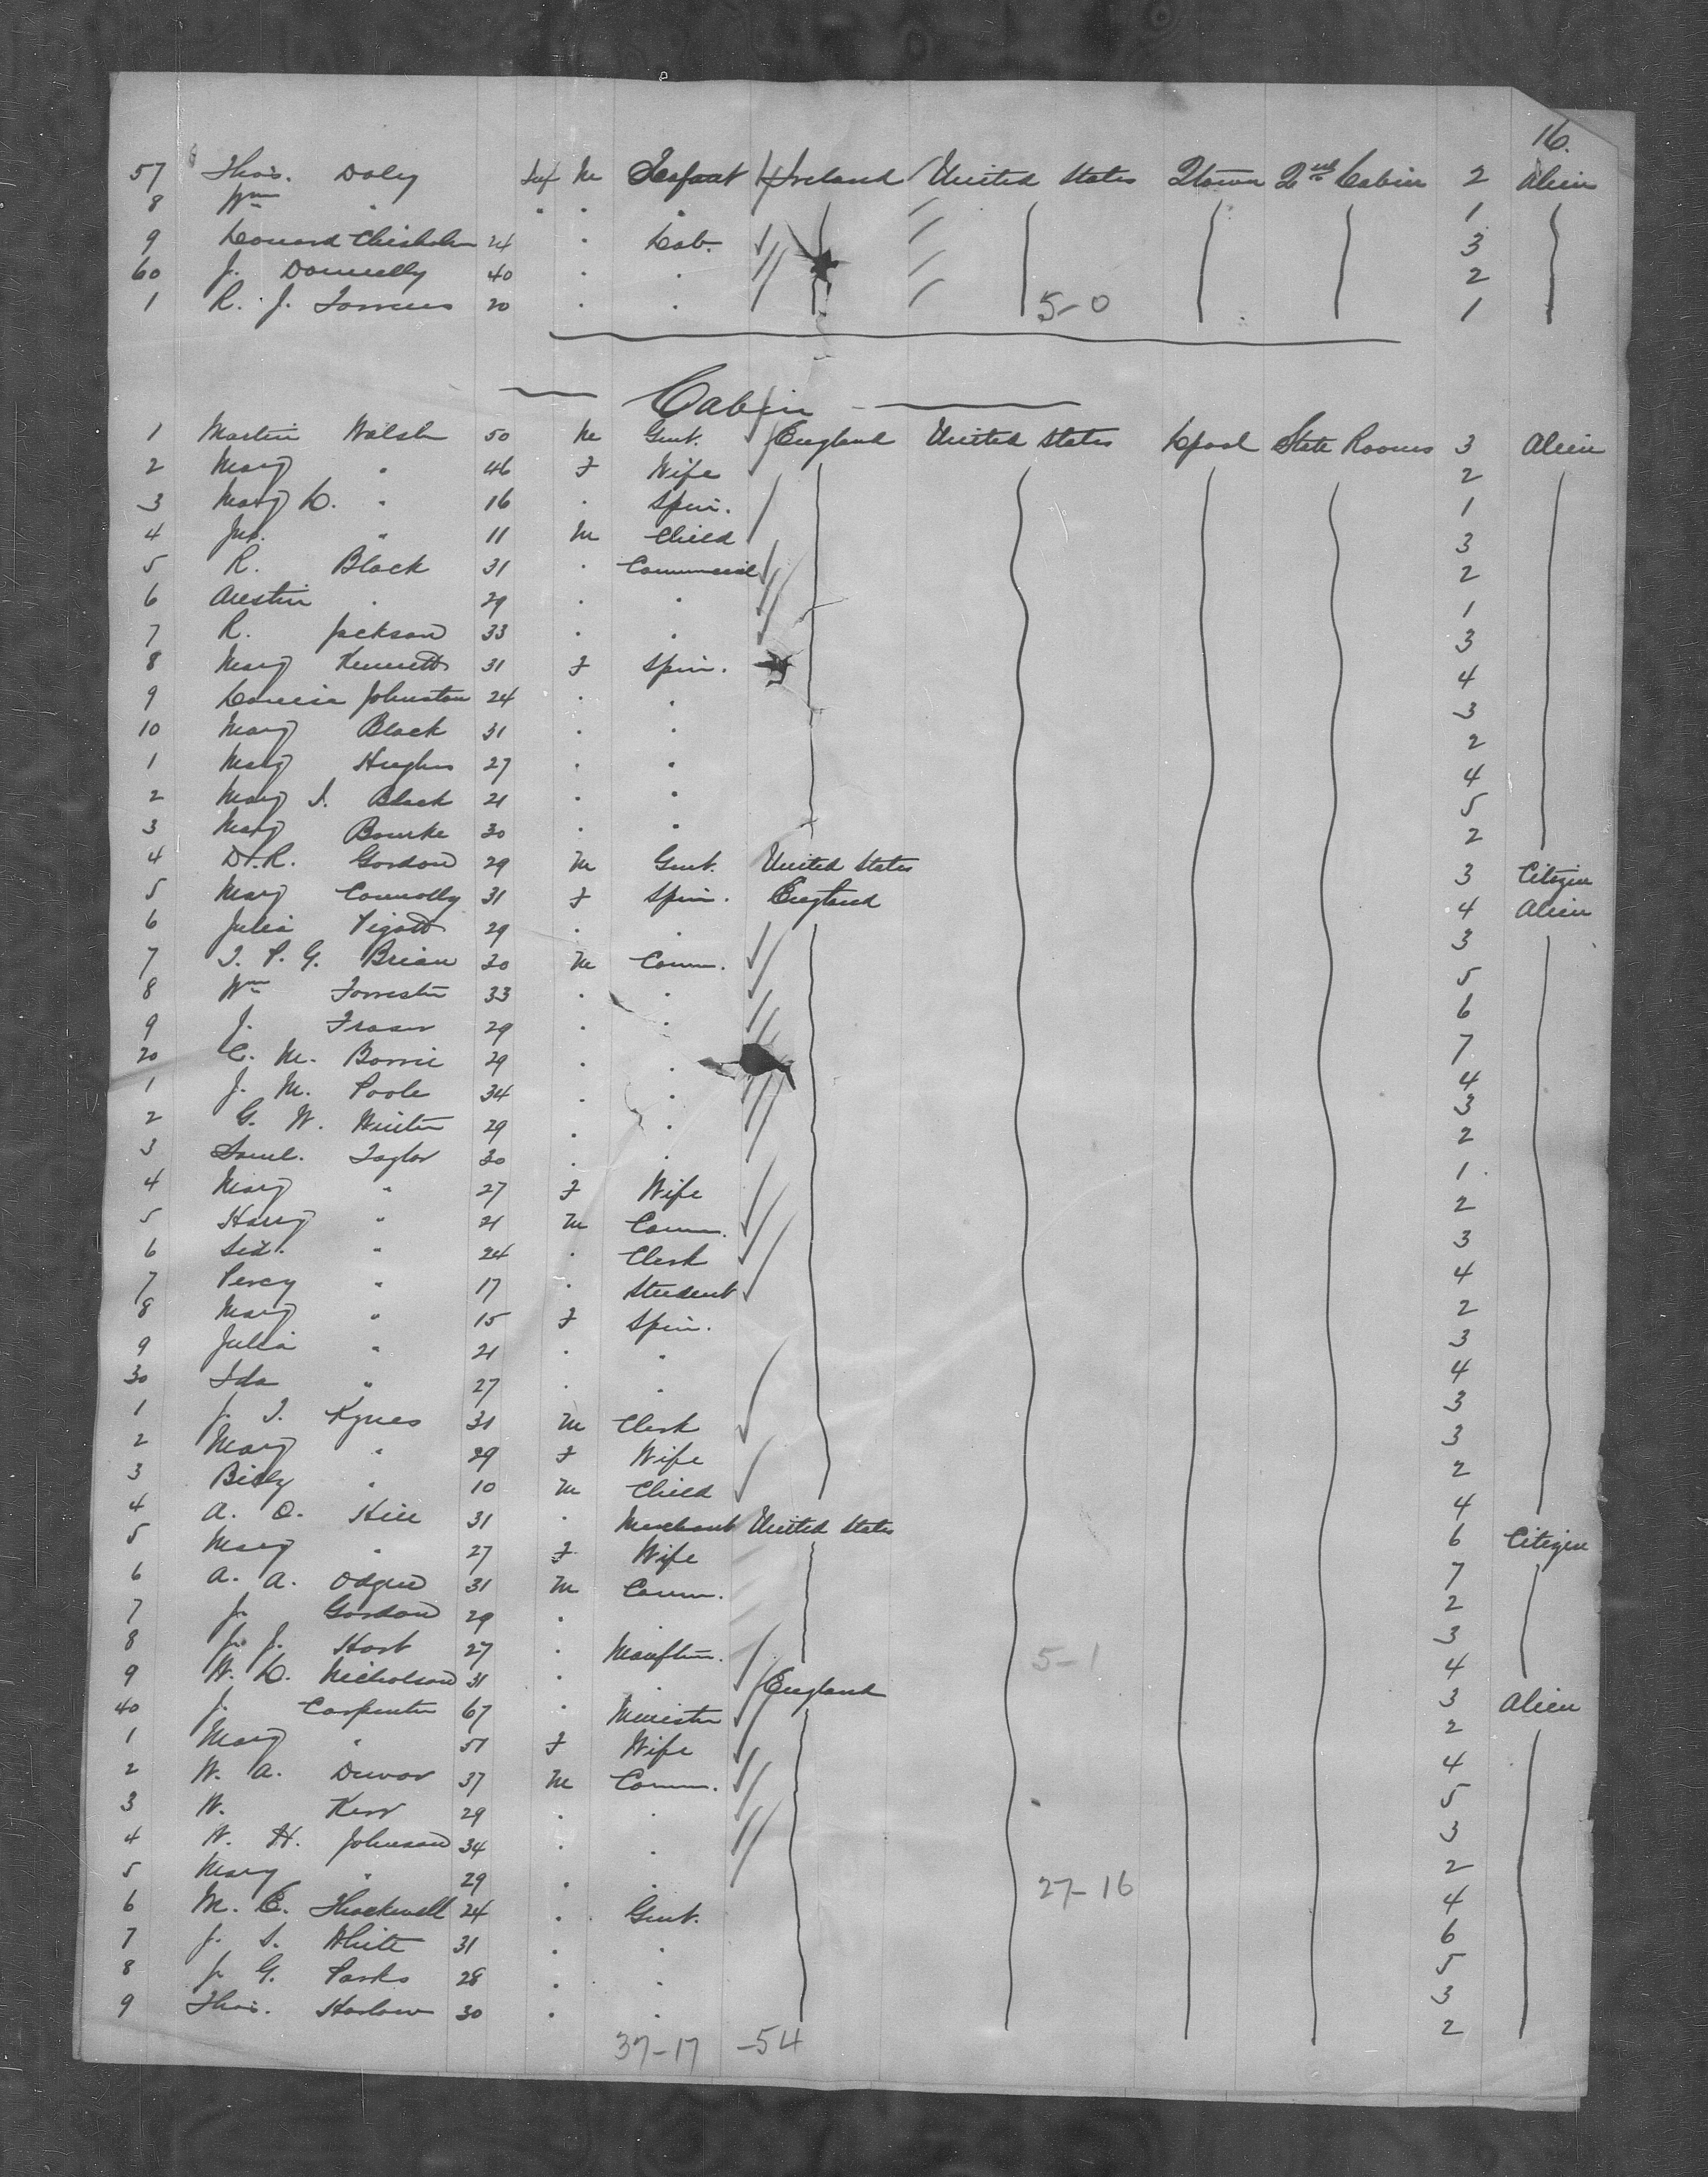 16.
57 Thos. Doley Inf M Infant Ireland United States Qtown 2nd Cabin 2 Alien
8 Wm " " " " 1
9 Leonard Chisholm 24 " Lab. 3
60 J. Donnelly 40 " " 2
1 R. J. 20 " " 1
5-0
Cabin
1 Martin Walsh 50 M Gent. England United States Lpool State Rooms 3 Alien
2 Mary " 46 F Wife 2
3 Mary L. " 16 " Spin. 1
4 Jno. " 11 M Child 3
5 R. Black 31 " Commercial 2
6 Austin " 29 " " 1
7 R. Jackson 33 " " 3
8 Mary Kennett 31 F Spin. 4
9 Louisa Johnston 24 " " 3
10 Mary Black 31 " " 2
1 Mary Hughes 27 " " 4
2 Mary J. Black 21 " " 5
3 Mary Bourke 30 " " 2
4 D. R. Gordon 29 M Gent. United States 3 Citizen
5 Mary Connolly 31 F Spin. England 4 Alien
6 Julia Pigott 29 " " 3
7 T. P. G. Brian 30 M Comm. 5
8 Wm Forrester 33 " " 6
9 J. Fraser 29 " " 7
20 C. M. Borrie 29 " " 4
1 J. M. Poole 34 " " 3
2 G. W. Winter 29 " " 2
3 Saml. Taylor 30 " " 1
4 Mary " 27 F Wife 2
5 Harry " 21 M Comm. 3
6 Sid. " 24 " Clerk 4
7 Percy " 17 " Student 2
8 Mary " 15 F Spin. 3
9 Julia " 21 " " 4
30 Ida " 27 " " 3
1 J. T. Kynes 31 M Clerk 3
2 Mary " 29 F Wife 2
3 Billy " 10 M Child 4
4 A. O. Hill 31 " Merchant United States 6 Citizen
5 Mary " 27 F Wife 7
6 A. A. Odgen 31 M Comm. 2
7 J. Gordon 29 " 3
8 J. J. Hart 27 " Manftur. 4
5-1
9 W. L. Nicholson 31 " " England 3 Alien
40 J. Carpenter 67 " Minister 2
1 Mary " 51 F Wife 4
2 W. A. 37 M Comm. 5
3 W. Kerr 29 " " 3
4 W. H. Johnson 34 " " 2
5 Mary " 29 " " 4
27-16
6 M. E. Thackwell 24 " Gent. 6
7 J. S. White 31 " " 5
8 J. G. Parks 28 " " 3
9 Thos. Harlow 30 " " 2
37-17 -54